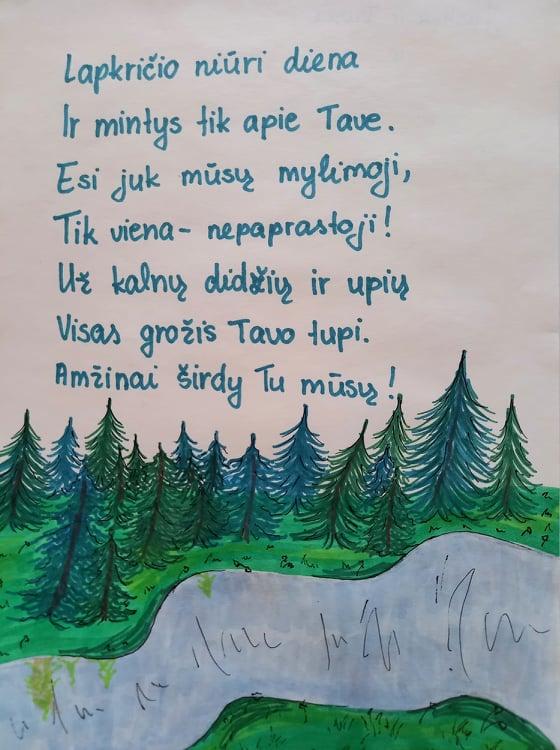 Lapkričio niūri diena
Ir mintys tik apie Tave.
Esi juk mūsų mylimoji,
Tik viena- nepaprastoji!
Už kalnų didžių ir upių
Visas grožis Tavo tupi.
Amžinai širdy Tu mūsų!